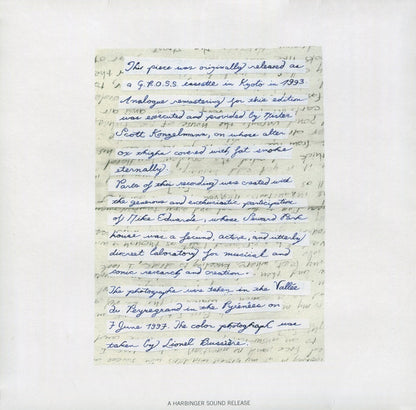 This piece was originally released as
a G.R.O.S.S. cassette in Kyoto in 1993.
Analogue remastering for this edition
was executed and provided by Mister
Scott Konzelmann, on whose altar
ox thighs covered with fat smoke
eternally.
Parts of this recording was created with
the generous and enthusiastic participation
of Mike Edwards, whose Seward Park
house was a fecund, active, and utterly
discreet laboratory for musical and
sonic research and creation.
The photographs were taken in the Vallée
du Peyregrand in the Pyrénées on
7 June 1997. The color photograph was
taken by Lionel Bussière.
A HARBINGER SOUND RELEASE